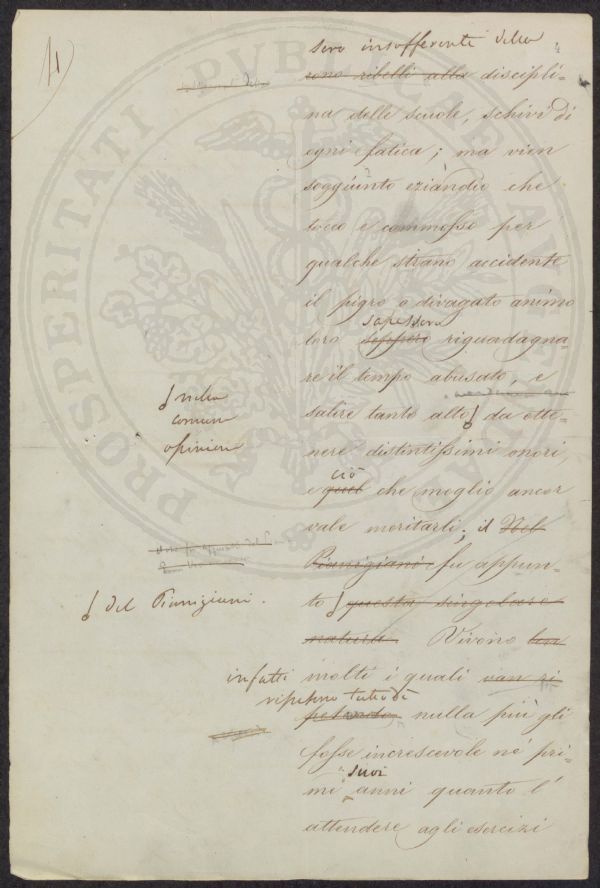 4
siva insofferente della
sono ribelli alla discipli-
na delle scuole, schivi di
ogni fatica; ma vien
soggiunto eziandio che
tocco e commosso per
qualche strano accidente
il pigro o divagato animo
sapessero
loro seppero riguadagna-
re il tempo abusato, e
nella
comune
opinione
salire tanto alto da otte-
nere distintissimi onori,
ciò
e quel che meglio ancor
vale meritarli; il Nel
Pianigiani fu appun-
del Pianigiani.
to questa singolare
natura. Vivono ben
infatti molti i quali van ri
ripetono tutodì
petendo, nulla più gli
fosse increscevole nè pri-
suoi
mi anni quanto l'
attendere agli esercizi
PROSPERITATI PVBLICAE AVGENDAE